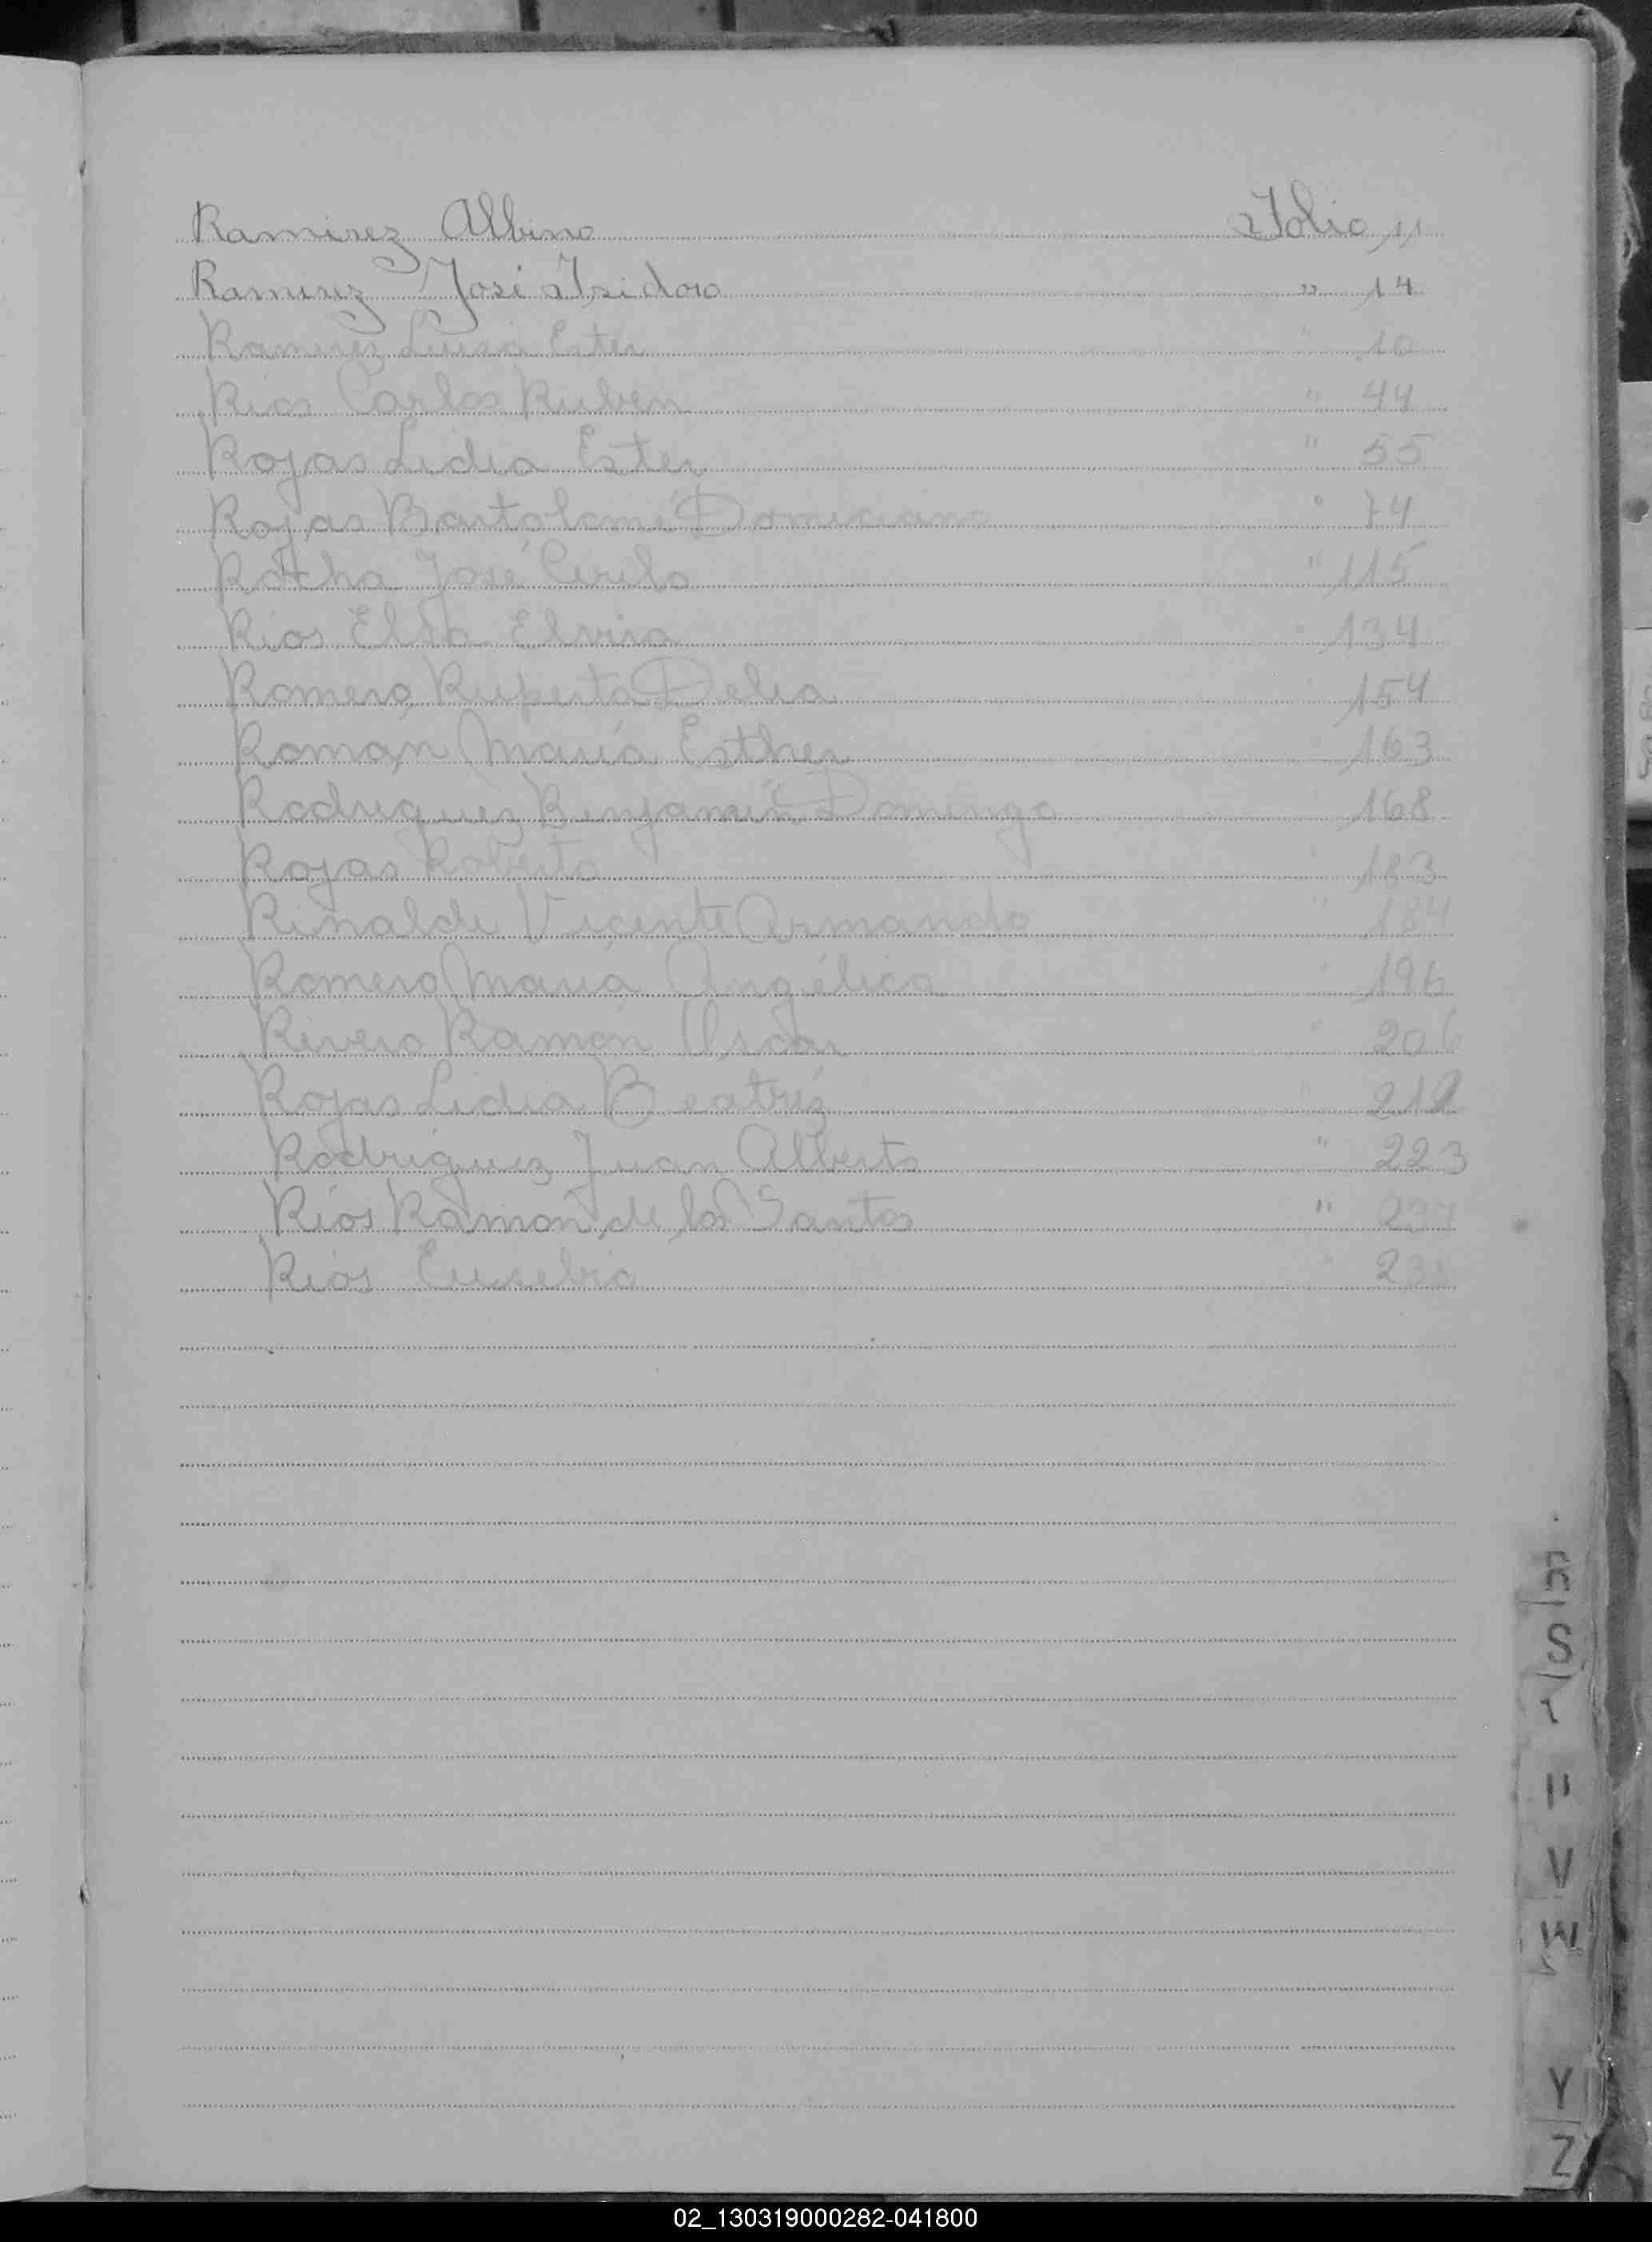 Ramirez Albino Folio 11
Ramirez José Isidoro " 14
Ramirez Luisa Ester " 10
Rios Carlos Ruben " 44
Rojas Lidia Ester " 55
Rojas Bartolomé Domiciano " 74
Rocha José Cirilo " 115
Rios Elsa Elvira " 134
Romero Ruperta Delia " 154
Roman María Esther " 163
Rodriguez Benjamín Domingo " 168
Rojas Roberto " 183
Rinaldi Vicente Armando " 184
Romero María Angélica " 196
Rivero Ramón Oscar " 206
Rojas Lidia Beatriz " 212
Rodriguez Juan Alberto " 223
Ríos Ramon de los Santos "
Rios Eusebio "
R
S
V
W
Y
Z
02_130319000282-041800